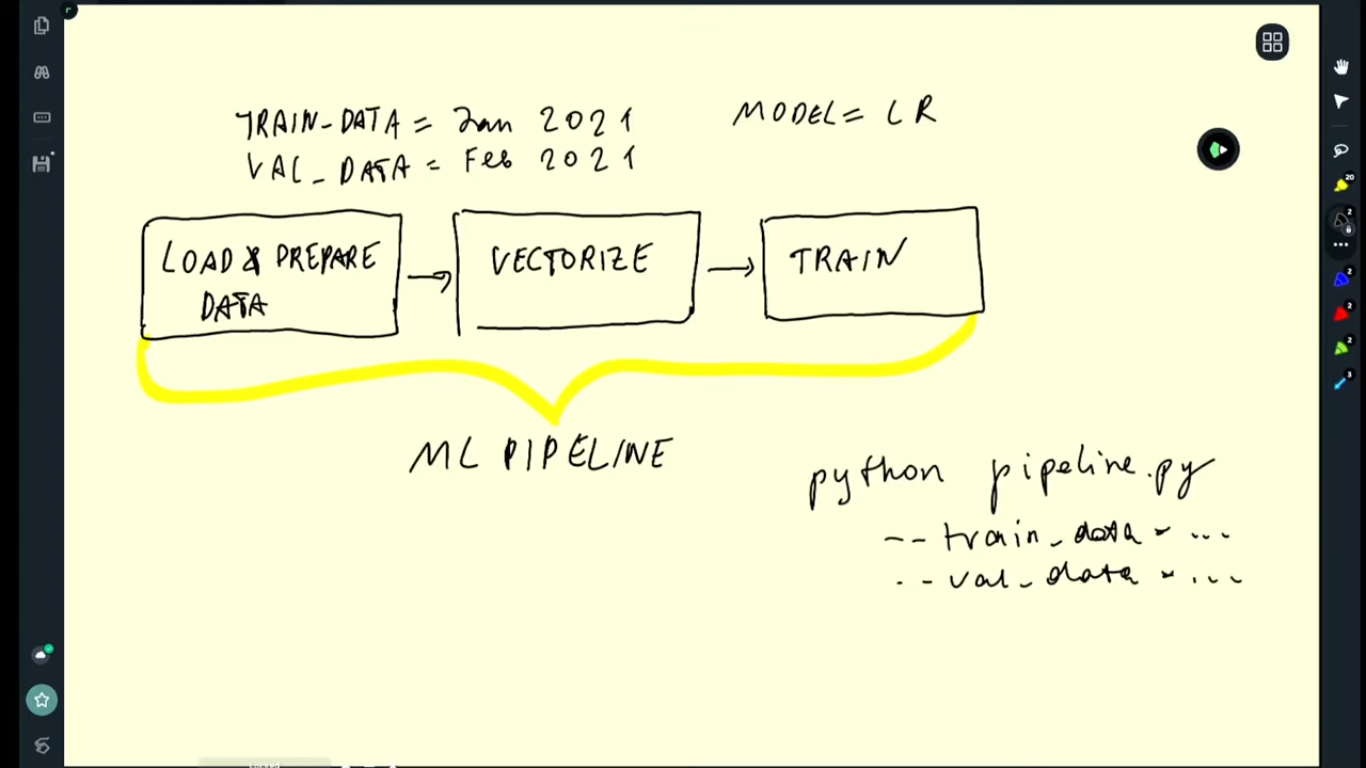 TRAIN_DATA = Jan 2021
VAL_DATA = Feb 2021
MODEL = LR
LOAD & PREPARE
DATA
VECTORIZE
TRAIN
ML PIPELINE
python pipeline.py
-- train_data = ...
-- val_data = ...
20
2
2
2
2
3